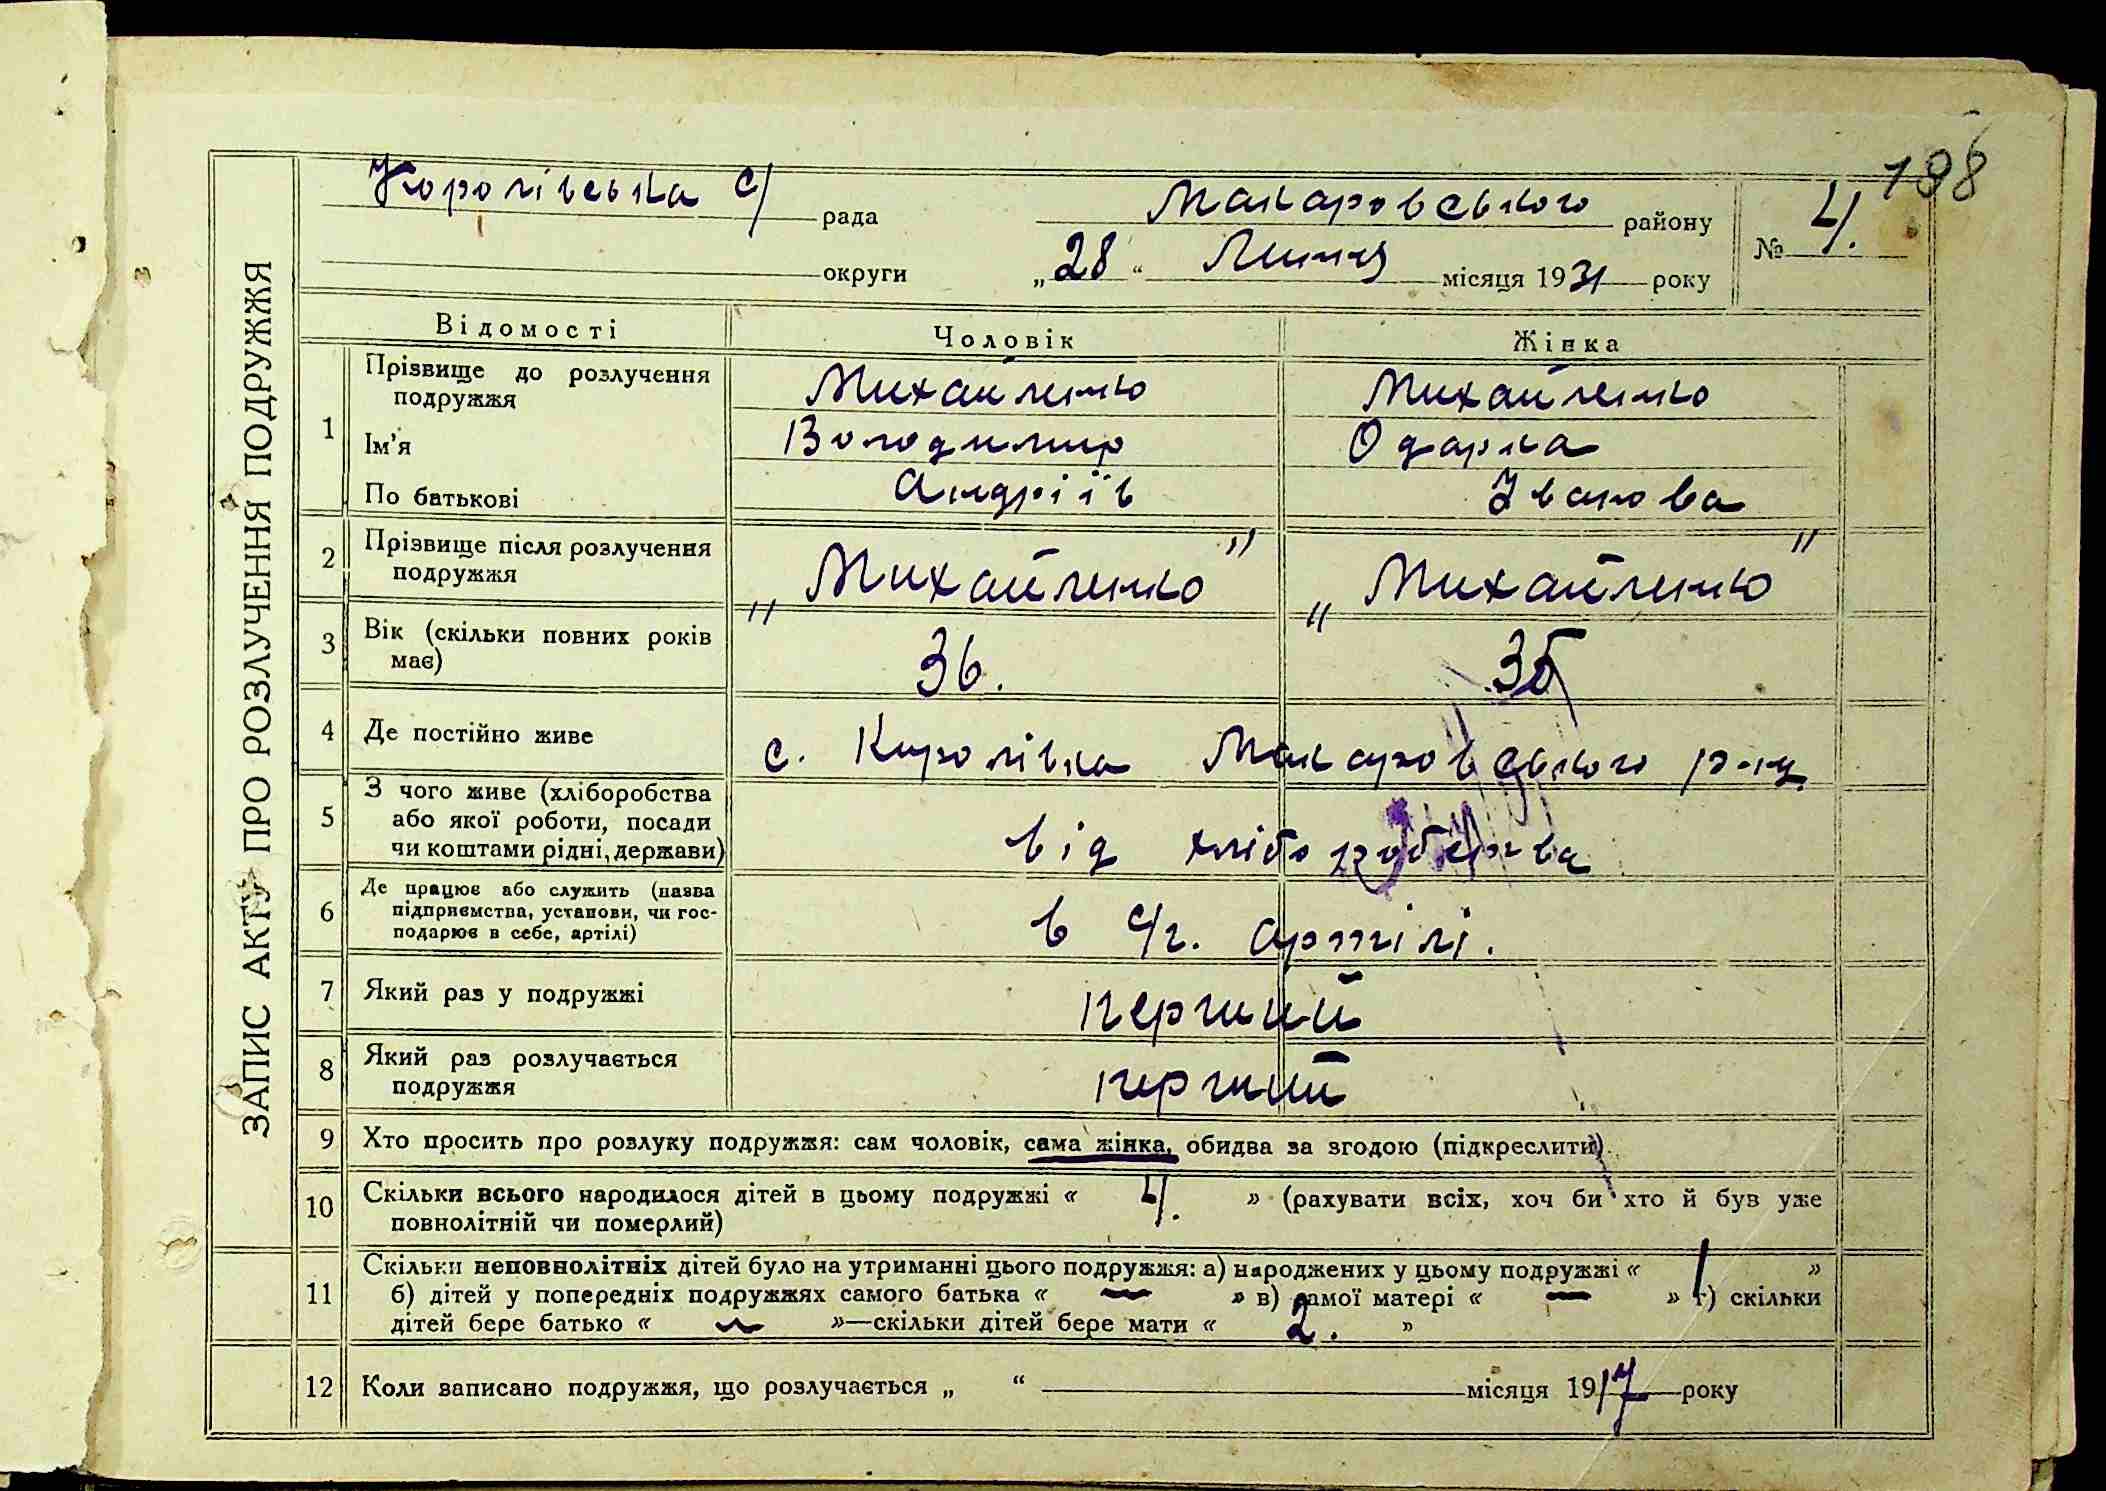 198
Королівська с/ рада Макаровського району № 4.
округи „28“ Липня місяця 1931 року
ЗАПИС АКТУ ПРО РОЗЛУЧЕННЯ ПОДРУЖЖЯ
Відомості Чоловік Жінка
1 Прізвище до розлучення подружжя Михайленко Михайленко
Ім'я Володимир Одарка
По батькові Андріїв Іванова
2 Прізвище після розлучення
подружжя „Михайленко" „Михайленко"
3 Вік (скільки повних років
має) 36. 35
4 Де постійно живе с. Королівка Макаровського р-ну
5 З чого живе (хліборобства
або якої роботи, посади
чи коштами рідні, держави) від хліборобства
6 Де працює або служить (назва
підприємства, установи, чи гос-
подарює в себе, артілі) в с/г. артілі.
7 Який раз у подружжі перший
8 Який раз розлучається
подружжя перший
9 Хто просить про розлуку подружжя: сам чоловік, сама жінка, обидва за згодою (підкреслити).
10 Скільки всього народилося дітей в цьому подружжі « 4. » (рахувати всіх, хоч би хто й був уже
повнолітній чи померлий)
11 Скільки неповнолітніх дітей було на утриманні цього подружжя: а) народжених у цьому подружжі « »
б) дітей у попередніх подружжях самого батька « — » в) самої матері « — » г) скільки
дітей бере батько « ~ »—скільки дітей бере мати « 2. »
12 Коли записано подружжя, що розлучається „ “ місяця 1917 року